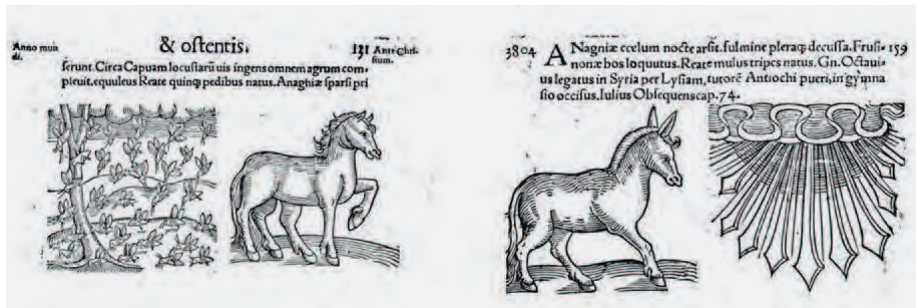 Anno mun
di.
& oſtentis.
131 Ante Chri-
ſtum.
ferunt. Circa Capuam locuſtarũ uis ingens omnem agrum com
pleuit. equuleus Reate quinq; pedibus natus. Anagniæ ſparſi pri
3804 ANagniæ cœlum nocte arſit. fulmine pleraq; decuſſa. Fruſi- 159
nonæ bos loquutus. Reate mulus tripes natus. Gn. Octaui-
us legatus in Syria per Lyſiam, tutorẽ Antiochi pueri, in gymna
ſio occiſus. Iulius Obſequens cap. 74.